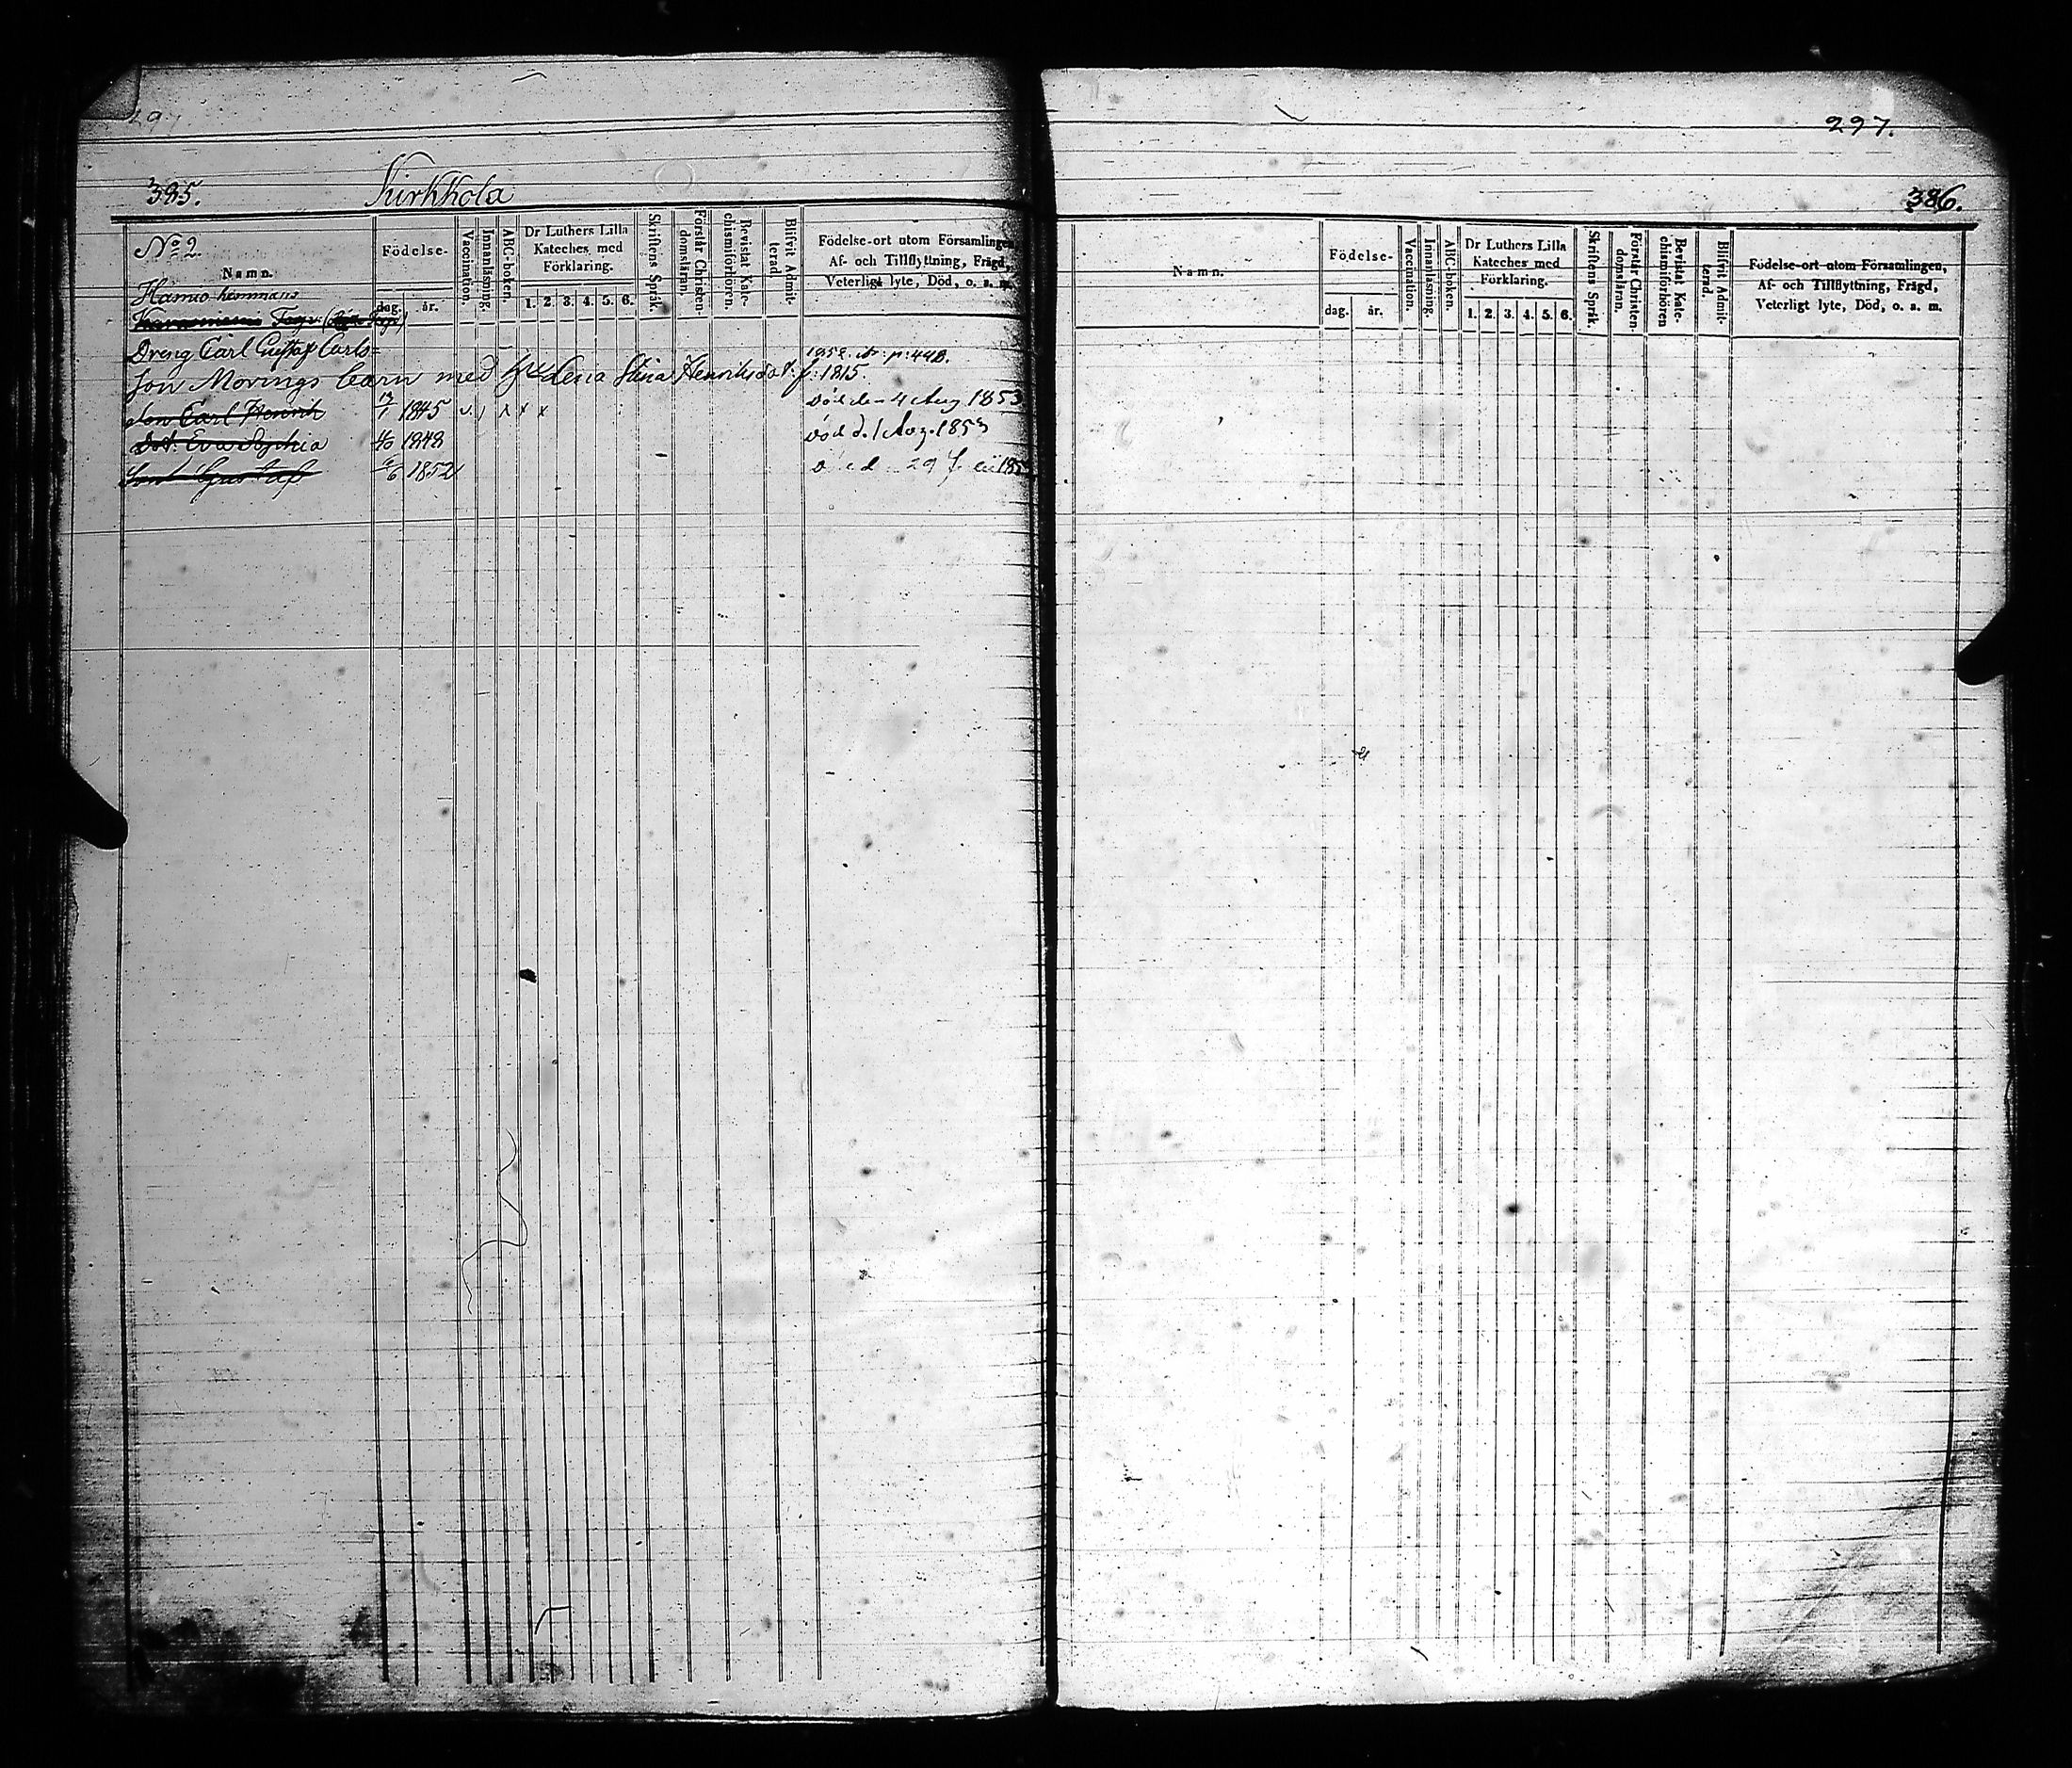 297.
385.
Kirkkola
386.
No 2.
Namn.
Födelse-
dag.
år.
Vaccination.
Innanläsning.
ABC-boken.
Dr Luthers Lilla
Kateches med
Förklaring.
1. 2. 3. 4. 5. 6.
Skriftens Språk.
Förstår Christen-
domsläran.
Bevistat Kate-
chismiförhören.
Blifvit Admit-
terad.
Födelse-ort utom Församlingen,
Af- och Tillflyttning, Frägd,
Veterligt lyte, Död, o. s. m.
hemmans
Dreng Carl Gustaf Carls=
1852
son Morings barn med Lena Stina Henriksdot: f: 1815.
Son Carl Henrik 1845 död den 4 Aug 1853
Dot: Eva Sophia 1848 död d. 1 Aug. 1853
Son Gustaf 6 1852 29
Namn.
Födelse-
dag.
år.
Vaccination.
Innanläsning.
ABC-boken.
Dr Luthers Lilla
Kateches med
Förklaring.
1. 2. 3. 4. 5. 6.
Skriftens Språk.
Förstår Christen-
domsläran.
Bevistat Kate-
chismiförhören
Blifvit Admit-
terad.
Födelse-ort utom Församlingen,
Af- och Tillflyttning, Frägd,
Veterligt lyte, Död, o. s. m.